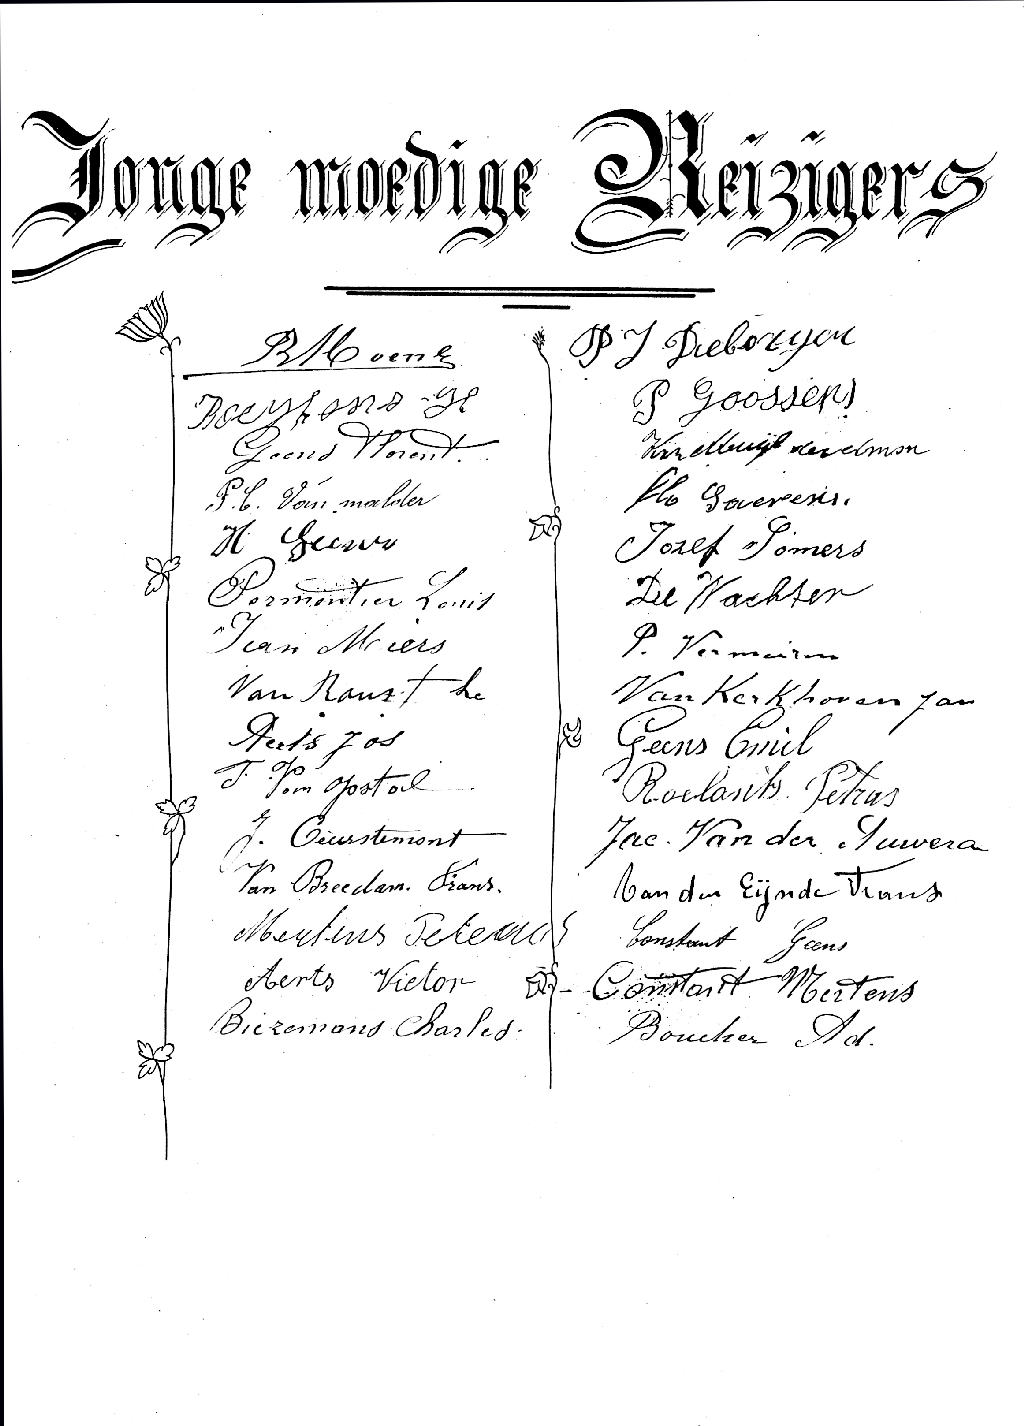 Jonge moedige Reizigers
R Moens
Geens Florent.
P.C. Van malder
H Geens
Parmentier Louis
Jean Miers
Van Ranst
Aerts Jos
J. Van Opstal
J. Ceurstemont
Van Breedam Frans.
Mertens Petrus
Aerts Victor
Biezemans Charles.
P J
P Goossens
Flo Gaerens.
Jozef Somers
De Wachter
P. Vermeiren
Van Kerkhoven Jan
Geens Emil
Roelants Petrus
Jac. Van der Auwera
Van den Eijnde Frans
Constant Geens
Constant Mertens
Boucher Ad.